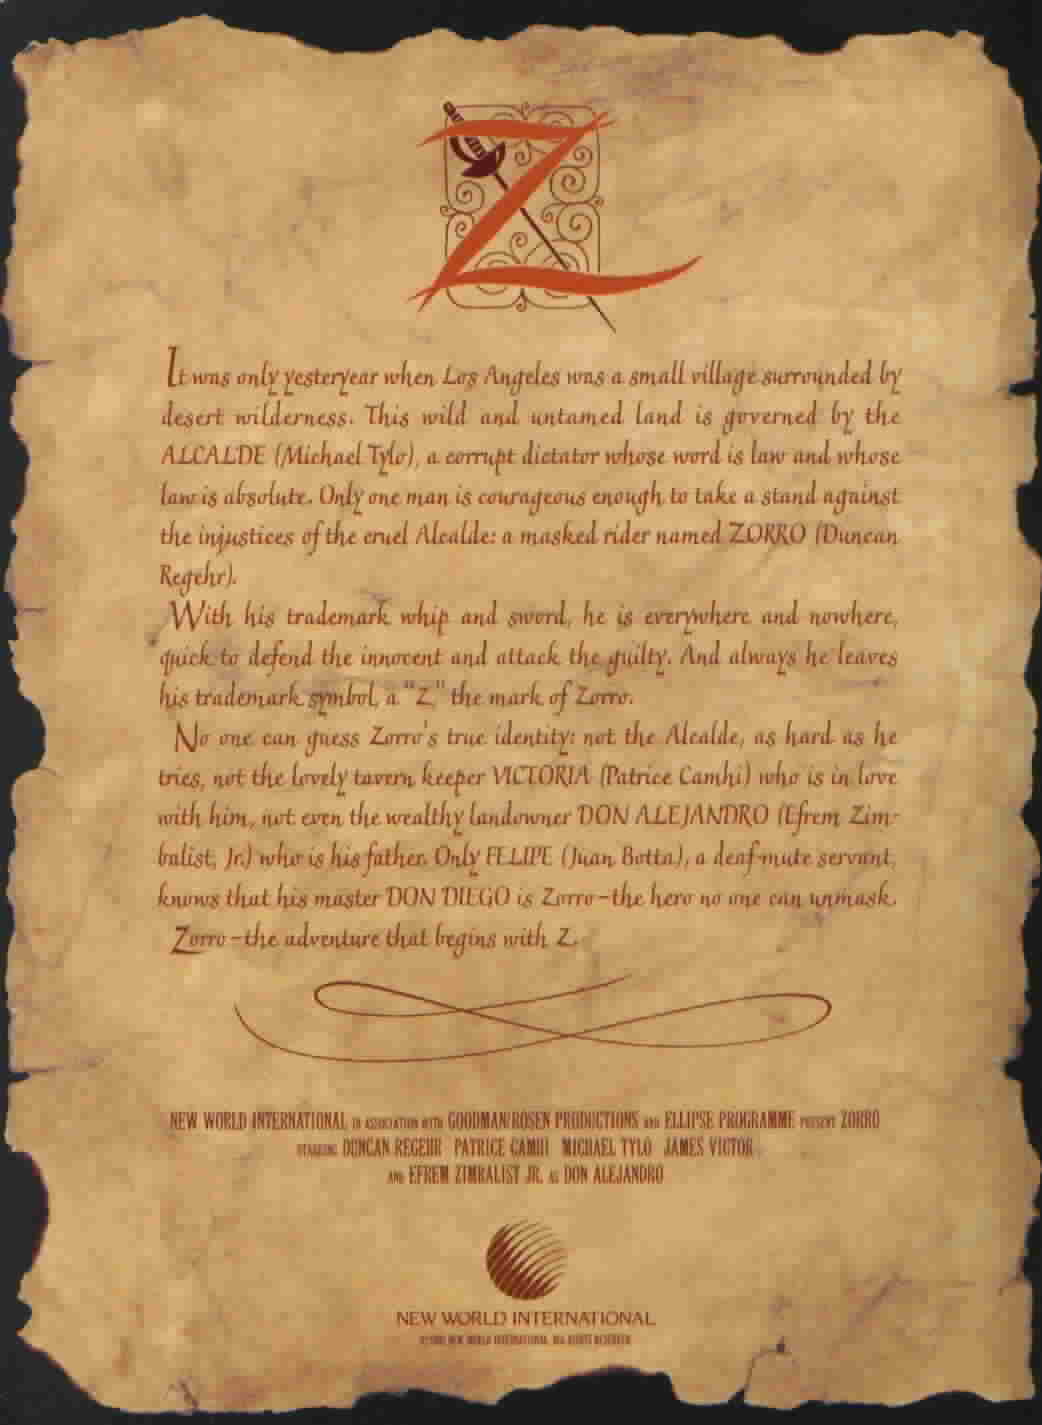 Z
It was only yesteryear when Los Angeles was a small village surrounded by
desert wilderness. This wild and untamed land is governed by the
ALCALDE (Michael Tylo), a corrupt dictator whose word is law and whose
law is absolute. Only one man is courageous enough to take a stand against
the injustices of the cruel Alcalde: a masked rider named ZORRO (Duncan
Regehr).
With his trademark whip and sword, he is everywhere and nowhere,
quick to defend the innocent and attack the guilty. And always he leaves
his trademark symbol, a "Z," the mark of Zorro.
No one can guess Zorro's true identity: not the Alcalde, as hard as he
tries, not the lovely tavern keeper VICTORIA (Patrice Camhi) who is in love
with him, not even the wealthy landowner DON ALEJANDRO (Efrem Zim-
balist, Jr.) who is his father. Only FELIPE (Juan Botta), a deaf-mute servant,
knows that his master DON DIEGO is Zorro–the hero no one can unmask.
Zorro–the adventure that begins with Z.
NEW WORLD INTERNATIONAL IN ASSOCIATION WITH GOODMAN/ROSEN PRODUCTIONS AND ELLIPSE PROGRAMME PRESENT ZORRO
STARRING DUNCAN REGEHR PATRICE CAMHI MICHAEL TYLO JAMES VICTOR
AND EFREM ZIMBALIST JR. AS DON ALEJANDRO
NEW WORLD INTERNATIONAL
NEW WORLD INTERNATIONAL. ALL RIGHTS RESERVED